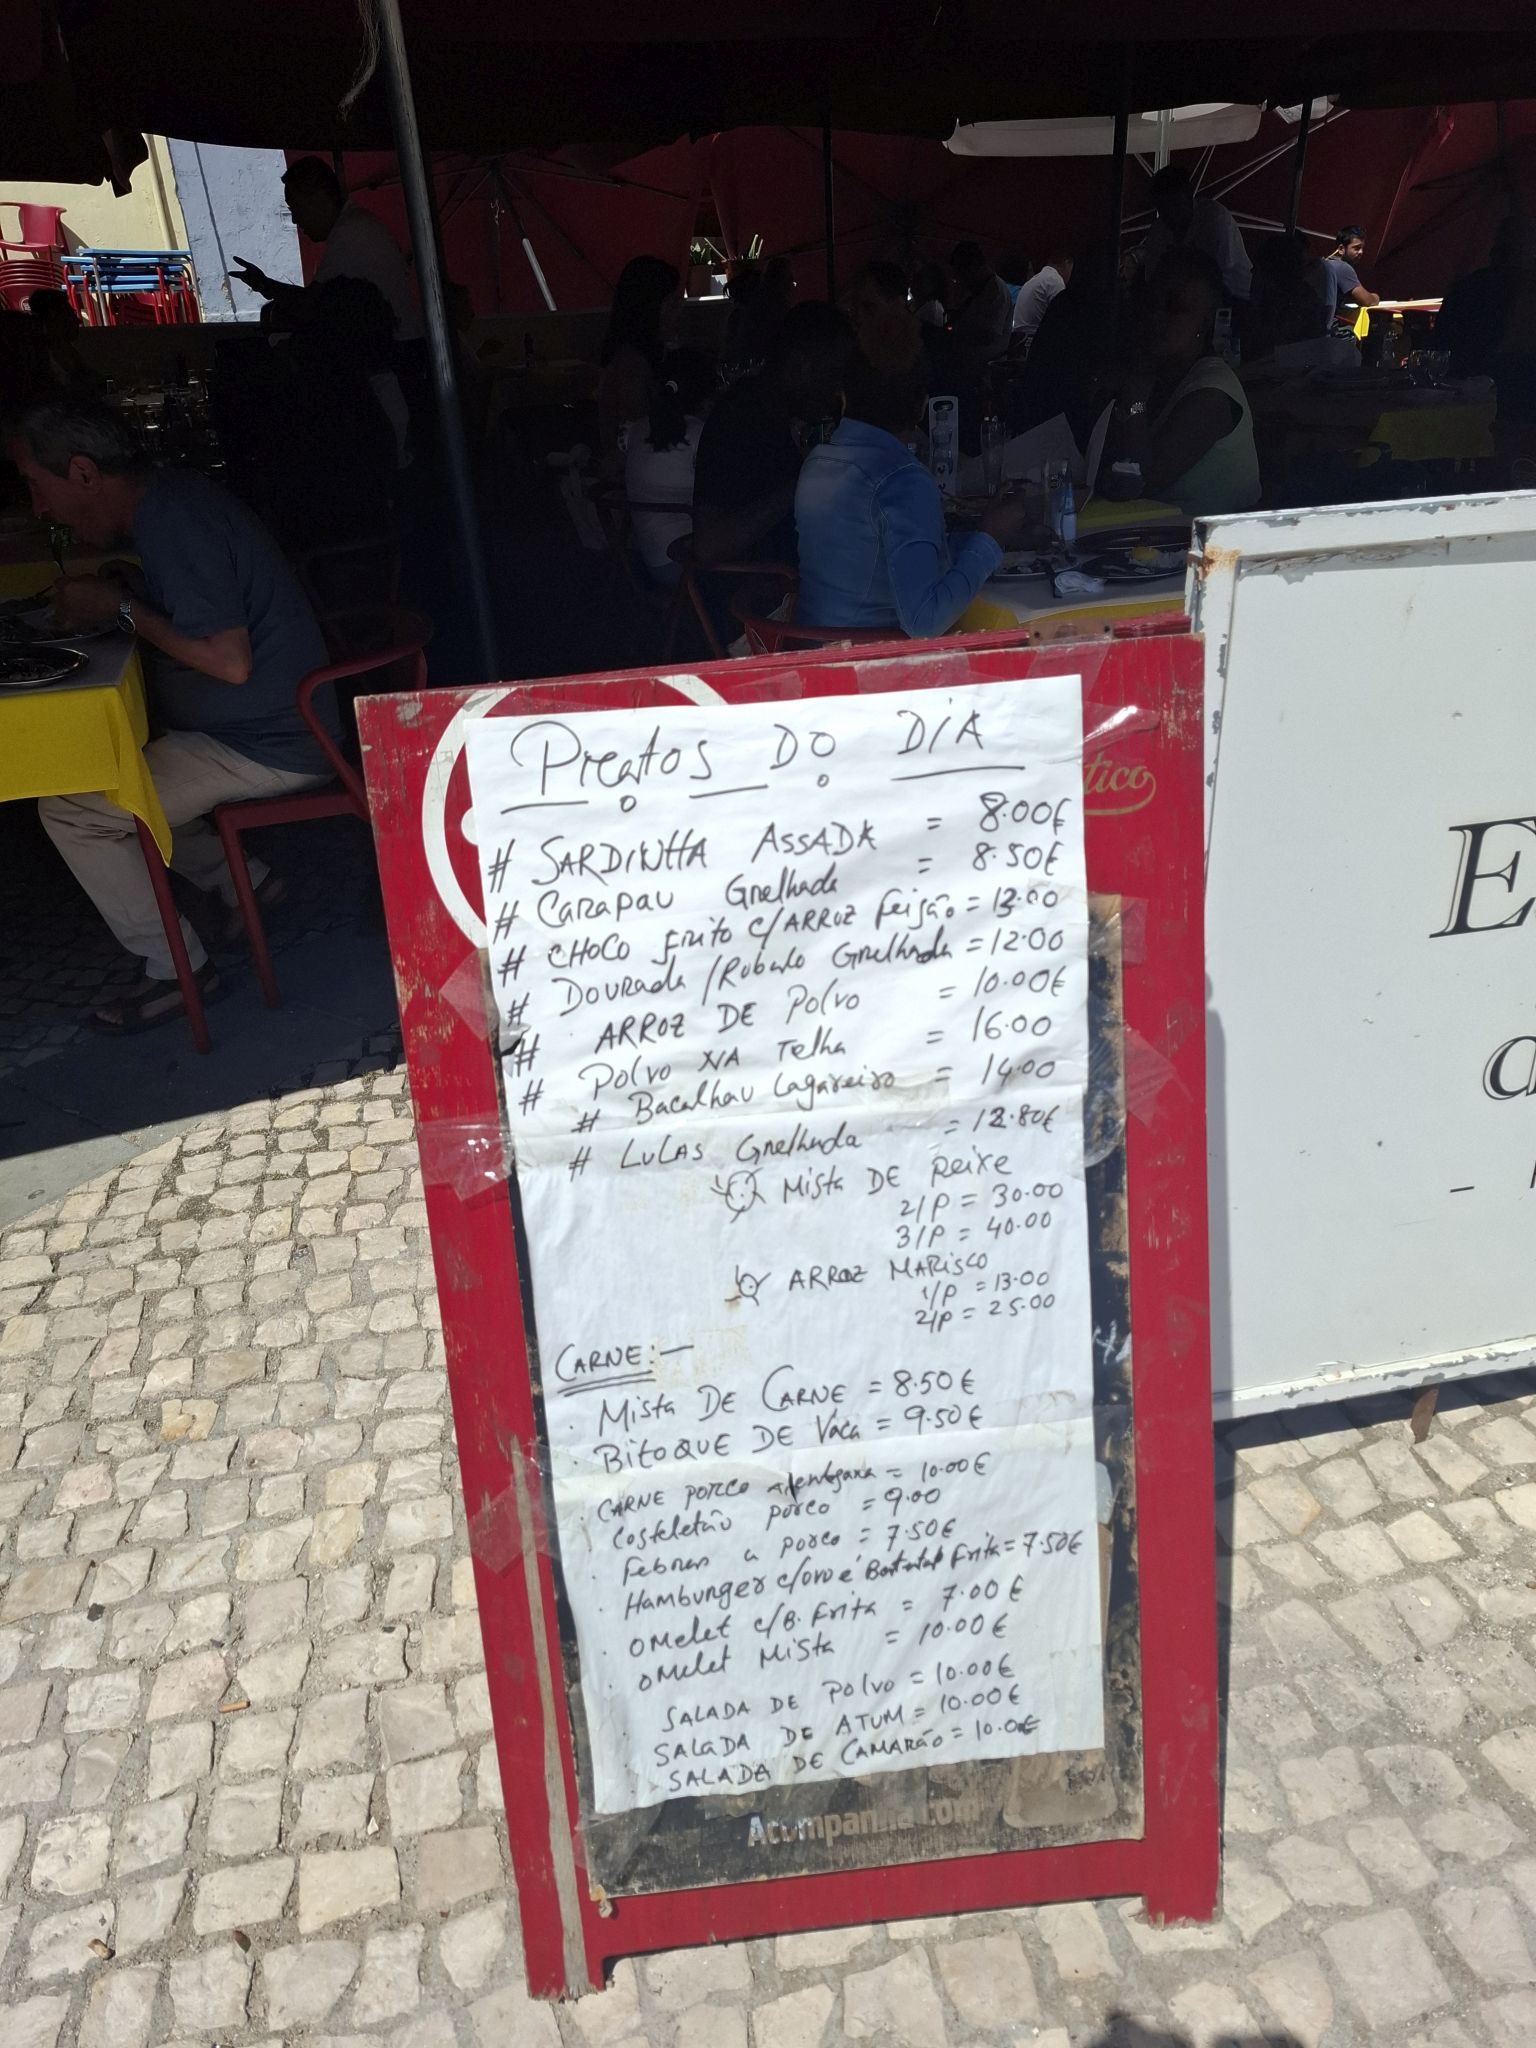 Pratos DO DIA
# SARDINHA ASSADA = 8.00€
# CARAPAU Grelhada = 8.50€
# CHOCO frito c/ARROZ feijão = 13.00
# DOURADA /Robalo Grelhada = 12.00
# ARROZ DE Polvo = 10.00€
# Polvo NA Telha = 16.00
# Bacalhau Lagareiro = 14.00
# LULAS Grelhada = 12.80€
Mista DE Peixe
2/P = 30.00
3/P = 40.00
ARROZ MARISCO
1/P = 13.00
2/P = 25.00
CARNE:-
. Mista DE CARNE = 8.50€
. BitoQUE DE Vaca = 9.50€
. CARNE PORCO alentejana = 10.00€
. Costeletão porco = 9.00
. Febras porco = 7.50€
. Hamburger c/ovo é Batata Frita = 7.50€
. OMelet c/B. Frita = 7.00€
. OMelet Mista = 10.00€
SALADA DE Polvo = 10.00€
SALADA DE ATUM = 10.00€
SALADA DE CAMARÃO = 10.0€
Acompanha com
tico
E